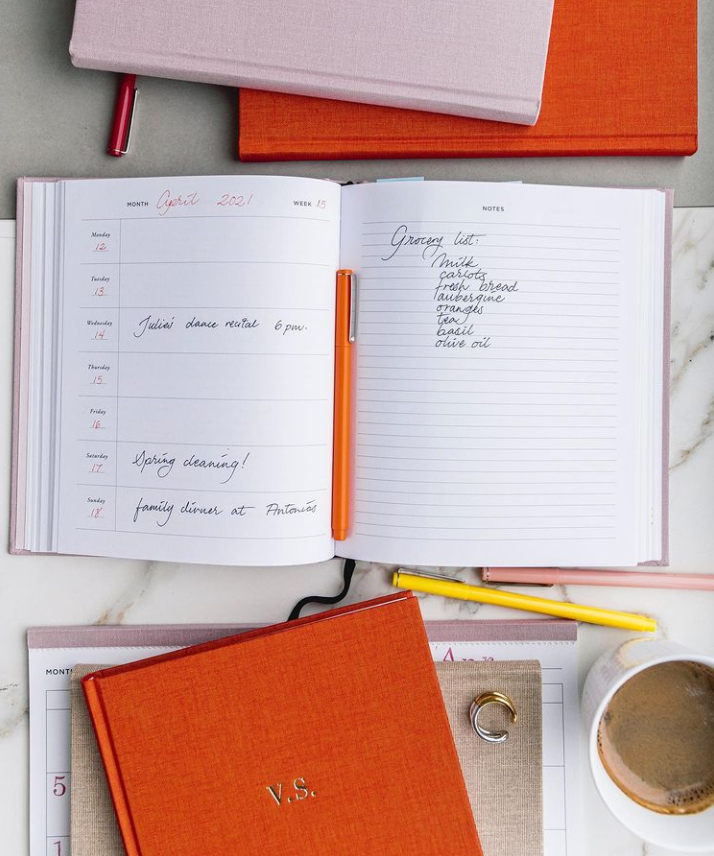 MONTH April 2021 WEEK 15
Monday
12
Tuesday
13
Wednesday
14 Julie's dance recital 6 pm.
Thursday
15
Friday
16
Saturday
17 Spring cleaning!
Sunday
18 family dinner at Antonias
NOTES
Grocery list:
Milk
carlots
fresh bread
aubergine
oranges
tea
basil
olive oil
MONTH
5
1
V.S.